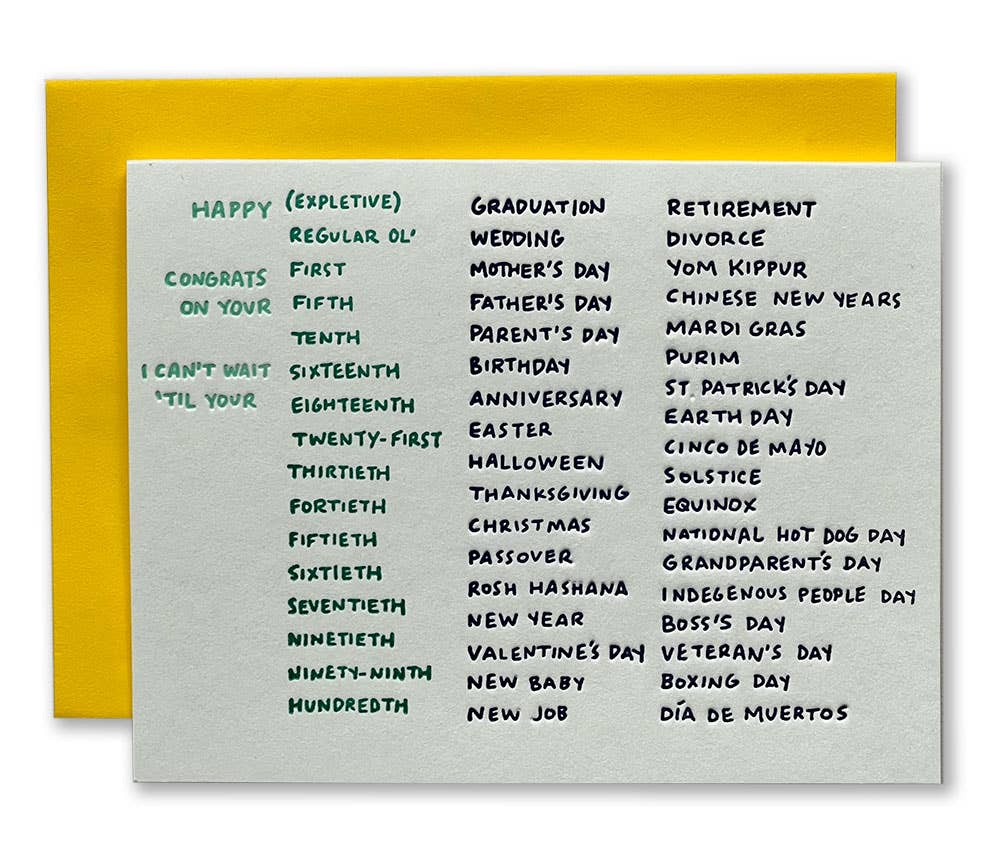 HAPPY
CONGRATS
ON YOUR
I CAN'T WAIT
'TIL YOUR
(EXPLETIVE)
REGULAR OL'
FIRST
FIFTH
TENTH
SIXTEENTH
EIGHTEENTH
TWENTY-FIRST
THIRTIETH
FORTIETH
FIFTIETH
SIXTIETH
SEVENTIETH
NINETIETH
NINETY-NINTH
HUNDREDTH
GRADUATION
WEDDING
MOTHER'S DAY
FATHER'S DAY
PARENT'S DAY
BIRTHDAY
ANNIVERSARY
EASTER
HALLOWEEN
THANKSGIVING
CHRISTMAS
PASSOVER
ROSH HASHANA
NEW YEAR
VALENTINE'S DAY
NEW BABY
NEW JOB
RETIREMENT
DIVORCE
YOM KIPPUR
CHINESE NEW YEARS
MARDI GRAS
PURIM
ST. PATRICK'S DAY
EARTH DAY
CINCO DE MAYO
SOLSTICE
EQUINOX
NATIONAL HOT DOG DAY
GRANDPARENT'S DAY
INDEGENOUS PEOPLE DAY
BOSS'S DAY
VETERAN'S DAY
BOXING DAY
DÍA DE MUERTOS